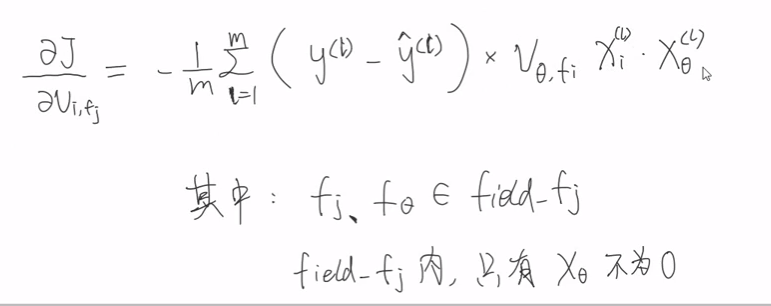 ∂J/∂v_{i,fj} = -1/m Σ_{l=1}^{m} ( y^{(l)} - ŷ^{(l)} ) × v_{θ,fi} x_i^{(l)} · x_θ^{(l)}
其中: fj、fθ ∈ field_fj
field_fj 内, 只有 x_θ 不为0